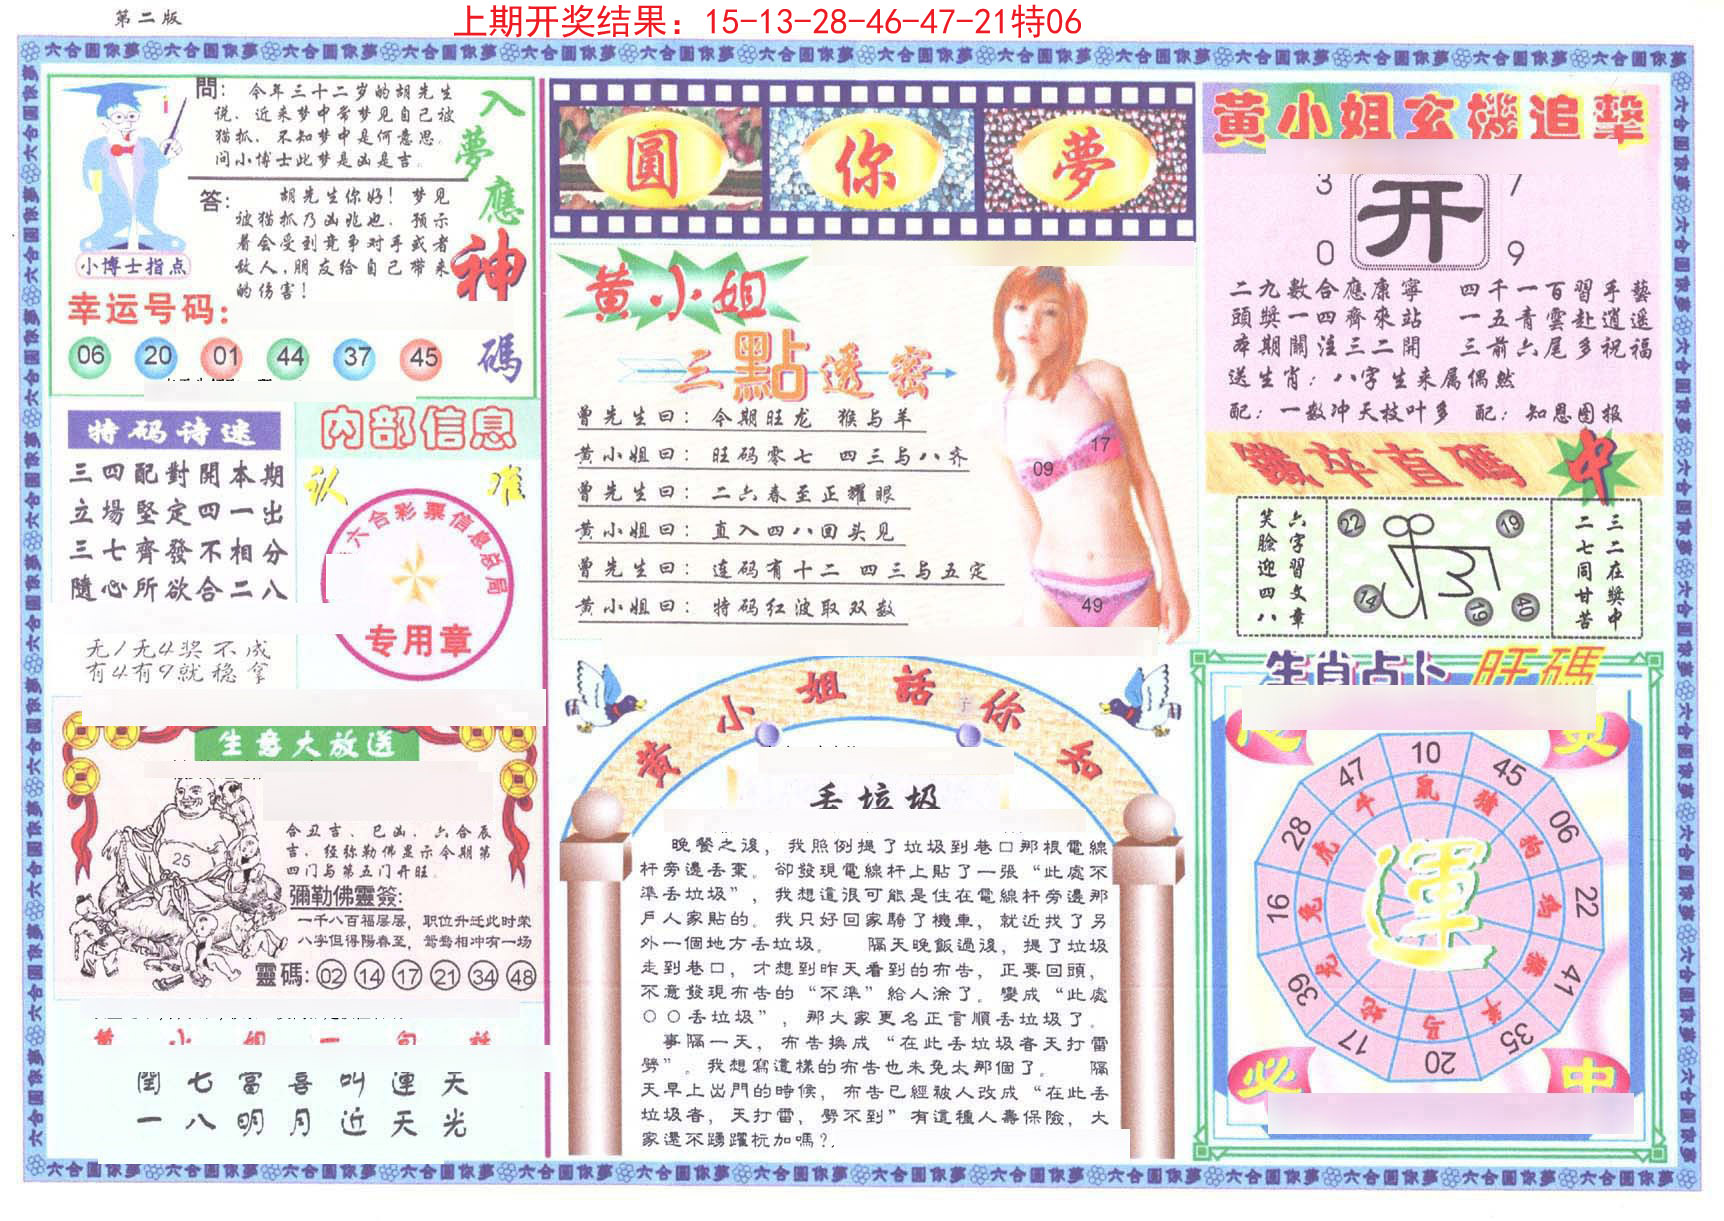 第二版
上期开奖结果：15-13-28-46-47-21特06
六合圆你夢
問：今年三十二岁的胡先生
说，近来梦中常梦见自己被
猫抓，不知梦中是何意思，
问小博士此梦是凶是吉。
答：胡先生你好！梦见
被猫抓乃凶兆也，预示
着会受到竞争对手或者
敌人，朋友给自己带来
的伤害！
小博士指点
入夢應神碼
幸运号码：
06 20 01 44 37 45
特码诗迷
三四配對開本期
立場堅定四一出
三七齊發不相分
隨心所欲合二八
无1无4奖不成
有4有9就稳拿
内部信息
认准
六合彩票信息总局
专用章
生意大放送
合丑吉、巳凶，六合辰
吉，经弥勒佛显示今期第
四门与第五门开旺。
25
彌勒佛靈簽：
一千八百福层层，职位升迁此时荣
八字但得陽春至，鸳鸯相冲有一场
靈碼：02 14 17 21 34 48
黄小姐一句話
閏七富喜叫連天
一八明月近天光
圓你夢
黄小姐
三點透密
曾先生曰：今期旺龙 猴与羊
黄小姐曰：旺码零七 四三与八齐
曾先生曰：二六春至正耀眼
黄小姐曰：直入四八回头见
曾先生曰：连码有十二 四三与五定
黄小姐曰：特码红波取双数
09 17
49
黄小姐話你知
丢垃圾
晚餐之後，我照例提了垃圾到巷口那根電線
杆旁邊丢棄。卻發現電線杆上貼了一張“此處不
準丢垃圾”，我想這很可能是住在電線杆旁邊那
戶人家貼的。我只好回家騎了機車，就近找了另
外一個地方丢垃圾。 隔天晚飯過後，提了垃圾
走到巷口，才想到昨天看到的布告，正要回頭，
不意發現布告的“不準”給人涂了。變成“此處
○○丢垃圾”，那大家更名正言順丢垃圾了。
事隔一天，布告換成“在此丢垃圾者天打雷
劈”。我想寫這樣的布告也未免太那個了。 隔
天早上出門的時候，布告已經被人改成“在此丢
垃圾者，天打雷，劈不到”有這種人壽保險，大
家還不踴躍抗加嗎？
黃小姐玄機追擊
3 7
开
0 9
二九數合應康寧 四千一百習手藝
頭獎一四齊來站 一五青雲赴逍遥
本期關注三二開 三前六尾多祝福
送生肖：八字生来属偶然
配：一数冲天枝叶多 配：知恩图报
鐵卒直碼中
六字習文章
笑臉迎四八
22 19 14 19 40
三二在獎中
二七同甘苦
生肖占卜 旺碼
必中
運
10 45 06 22 41 35 20 17 39 16 28 47
鼠 豬 狗 雞 猴 羊 馬 蛇 龙 兔 虎 牛